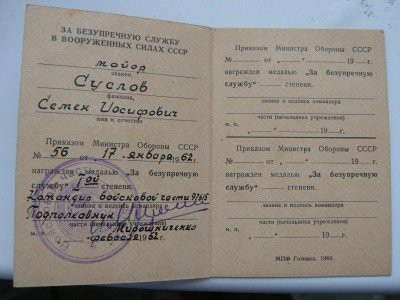 ЗА БЕЗУПРЕЧНУЮ СЛУЖБУ
В ВООРУЖЕННЫХ СИЛАХ СССР
майор
звание,
Суслов
фамилия,
Семен Иосифович
имя и отчество
Приказом Министра Обороны СССР
№ 56 от "17" января 1962 г.
награжден медалью „За безупречную
службу" Iой степени.
Командир войсковой части
звание и подпись командира
Подполковник
части (начальника учреждения)
Мирошниченко
м. п. февраля 1962 г.
Приказом Министра Обороны СССР
№ от " " 19 г.
награжден медалью „За безупречную
службу" степени.
звание и подпись командира
части (начальника учреждения)
м. п. " " 19 г.
Приказом Министра Обороны СССР
№ от " " 19 г.
награжден медалью „За безупречную
службу" степени.
звание и подпись командира
части (начальника учреждения)
м. п. " " 19 г.
МПФ Гознака. 1960.